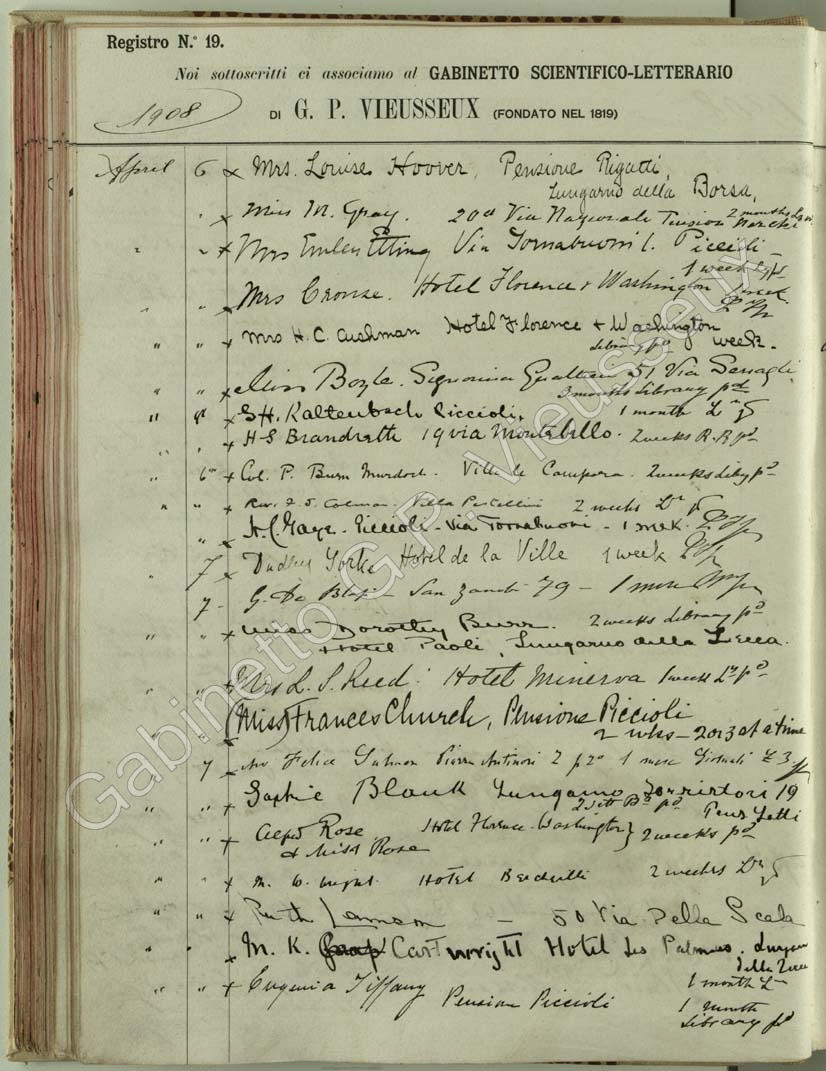 Registro N.° 19.
Noi sottoscritti ci associamo al GABINETTO SCIENTIFICO-LETTERARIO
1908
DI G. P. VIEUSSEUX (FONDATO NEL 1819)
April 6 x Mrs. Louise Hoover, Pensione Rigatti,
Lungarno della Borsa,
" x Miss M. Gray. 20 Via Nazionale Pension
2 months
" " x Mrs Emlen Etting Via Tornabuoni 1. Piccioli
1 week
" " Mrs Crouse. Hotel Florence & Washington 1 week
" " x Mrs H. C. Cushman Hotel Florence & Washington
Library pd week.
" " x Miss Boyle. Signorina Gualtieri 51 Via Serragli
3 months Library pd
" " x Kaltenbach Piccioli. 1 month
" " x H-S Brandreth 19 via Montebello. 2 weeks pd
" 6 x Col. P. Burn Murdoch. Villa la Campora. 2 weeks Liby pd
" " x Rev. Colman. Villa 2 weeks
" x Gaye - Piccioli - Via Tornabuoni - 1 week
" 7 x Dudley Yorke Hotel de la Ville 1 week
7 - G. De Blasi - San Zanobi 79 - 1 mese
" " x Miss Dorothy Burr. 2 weeks Library pd
Hotel Paoli, Lungarno della Zecca.
" " x Mrs L. S. Reed. Hotel Minerva 1 week pd
" " x (Miss) Frances Church, Pensione Piccioli
2 wks - 2 or 3 at a time
" 7 - Avv Felice Piazza Antinori 2 1 mese Giornali £ 3.
" " x Sophie Blank Lungarno Serristori 19
pd Pens
" " x Alfred Rose Hotel Florence-Washington } 2 weeks pd
& Miss Rose
" " x M. W. Wright Hotel 2 weeks
" " x Ruth - 50 Via Della Scala
" " x M. K. Cartwright Hotel des Palmes.
della Zecca
1 month
" " x Eugenia Tiffany Pension Piccioli
1 month
Library pd
Gabinetto G.P. Vieusseux